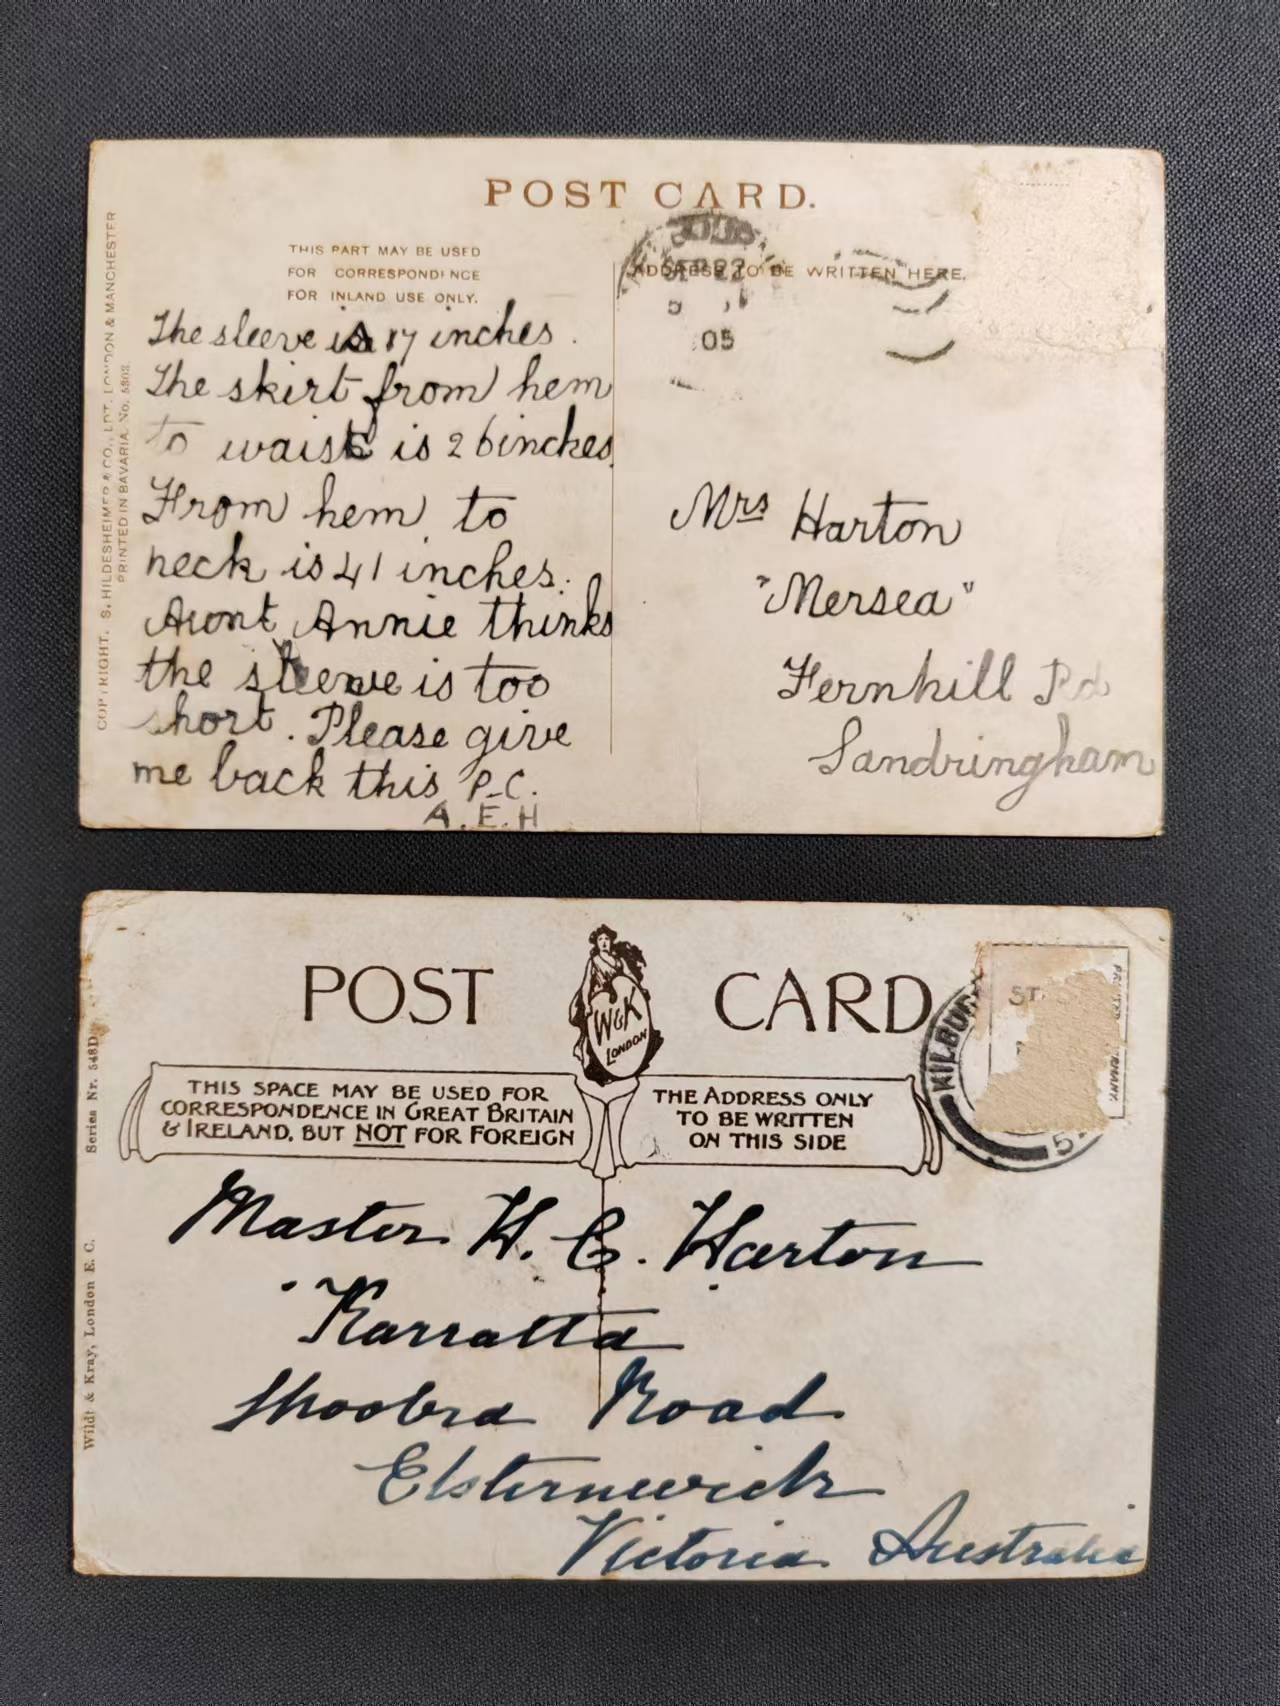 POST CARD.
THIS PART MAY BE USED
FOR CORRESPONDENCE
FOR INLAND USE ONLY.
ADDRESS TO BE WRITTEN HERE.
22
5
05
COPYRIGHT. S. HILDESHEIMER & CO., LDT. LONDON & MANCHESTER
PRINTED IN BAVARIA. No.
The sleeve is 17 inches.
The skirt from hem
to waist is 26 inches.
From hem to
neck is 41 inches.
Aunt Annie thinks
the sleeve is too
short. Please give
me back this P.C.
A.E.H
Mrs Harton
"Mersea"
Fernhill Rd
Sandringham
POST CARD
W&K
LONDON
KILBURN
ST
5
THIS SPACE MAY BE USED FOR
CORRESPONDENCE IN GREAT BRITAIN
& IRELAND, BUT NOT FOR FOREIGN
THE ADDRESS ONLY
TO BE WRITTEN
ON THIS SIDE
Series Nr. 548D
Wildt & Kray, London E. C.
Master H. C. Harton
"Karratta
Shoobra Road
Elsternwick
Victoria Australia